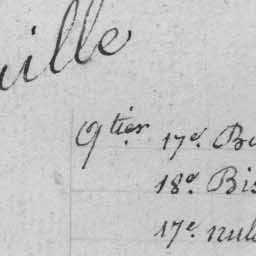 uille
Qtier 17e. Bu
18e Bis
17e. nul